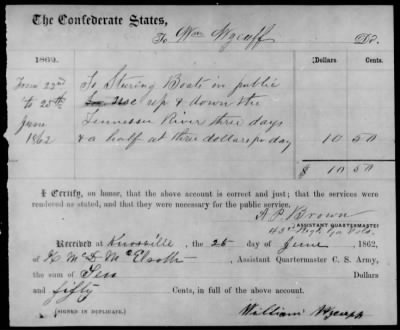 The Confederate States,
To Wm Wycuff Dr.
1862. Dollars Cents.
From 22nd To Steering Boats in public
to 25th use up & down the
June Tennessee River three days
1862 & a half at three dollars per day 10 50
$ 10 50
I Certify, on honor, that the above account is correct and just; that the services were
rendered as stated, and that they were necessary for the public service.
A. P. Brown
ASSISTANT QUARTERMASTER
43rd Regt Ga Vols.
Received at Knoxville, the 25 day of June 1862,
of Assistant Quartermaster C. S. Army,
the sum of Ten Dollars
and fifty Cents, in full of the above account.
(SIGNED IN DUPLICATE.) William Wycuff